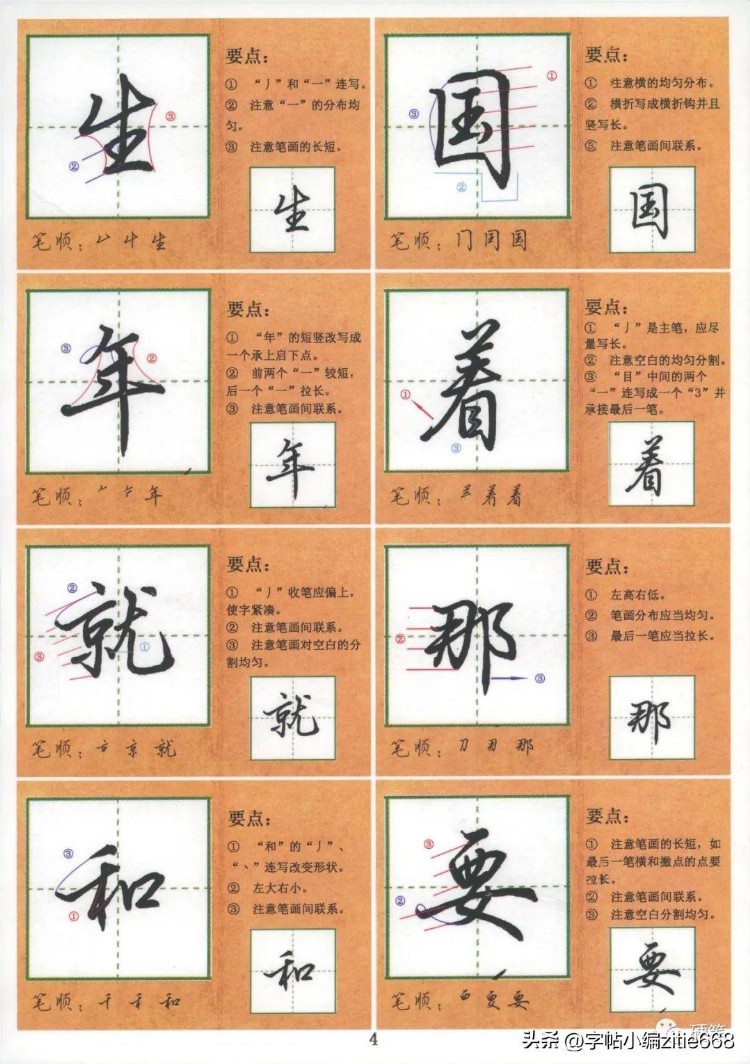 生
要点：
① “丿”和“一”连写。
② 注意“一”的分布均
匀。
③ 注意笔画的长短。
③
②
生
笔顺：
生
国
要点：
① 注意横的均匀分布。
② 横折写成横折钩并且
竖写长。
③ 注意笔画间联系。
①
③
②
国
笔顺：冂国国
年
要点：
① “年”的短竖改写成
一个承上启下点。
② 前两个“一”较短，
后一个“一”拉长。
③ 注意笔画间联系。
③
②
年
笔顺：
年
着
要点：
① “丿”是主笔，应尽
量写长。
② 注意空白的均匀分割。
③ “目”中间的两个
“一”连写成一个“3”并
承接最后一笔。
①
③
着
笔顺：
着着
就
要点：
① “丿”收笔应偏上，
使字紧凑。
② 注意笔画间联系。
③ 注意笔画对空白的分
割均匀。
②
③
①
就
笔顺：
京 就
那
要点：
① 左高右低。
② 笔画分布应当均匀。
③ 最后一笔应当拉长。
②
③
那
笔顺：
那
和
要点：
① “和”的“丿”、
“、”连写改变形状。
② 左大右小。
③ 注意笔画间联系。
③
①
和
笔顺：千 禾 和
要
要点：
① 注意笔画的长短，如
最后一笔横和撇点的点要
拉长。
② 注意笔画间联系。
③ 注意空白分割均匀。
③
②
要
笔顺：
要
4
硬笔
头条 @字帖小编zitie668